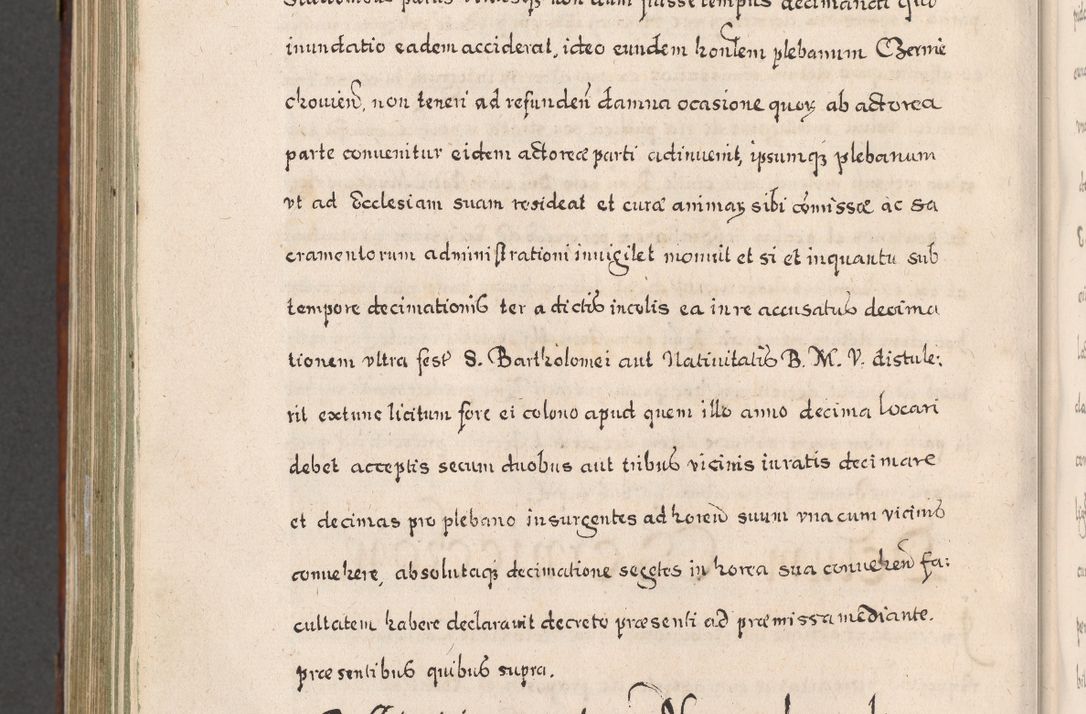 inundatio eadem acciderat, ideo eundem honlem plebanum Czernie
chouien, non teneri ad refunden damna ocasione quoꝝ ab actorea
parte conuenitur eidem actoreæ parti adinuenit, ipsumqꝫ plebanum
vt ad Ecclesiam suam resideat et curæ animaꝝ sibi comissæ ac Sa
cramentorum administrationi inuigilet monuit et si et inquantu sub
tempore decimationis ter a dictis incolis ea in re accusatus decima
tionem vltra fest S. Bartholomei aut Natiuitatis B. M. V. distule:
rit extunc licitum fore ei colono apud quem illo anno decima locari
debet acceptis secum duobus aut tribus vicinis iuratis decimare
et decimas pro plebano insurgentes ad horeu suum vna cum vicinis
conuehere, absolutaqꝫ decimatione segetes in horea sua conuehen fa:
cultatem habere declarauit decreto præsenti ad præmissa mediante.
præsentibus quibus supra.